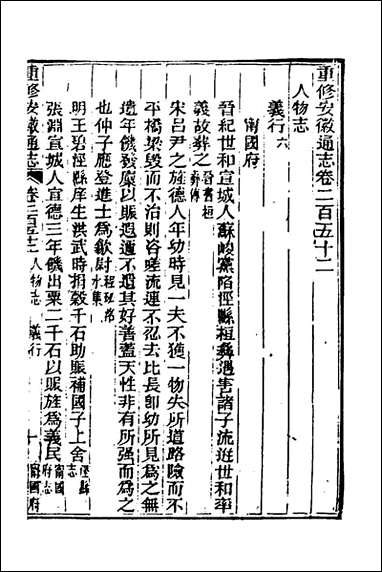 重修安徽通志卷二百五十二
人物志
義行六
甯國府
晉紀世和宣城人蘇峻黨陷涇縣桓彝遇害諸子流迸世和率
義故葬之晉書桓彝傳
宋呂尹之旌德人年幼時見一夫不獲一物失所道路險而不
平橋梁毀而不治則咨嗟流連不忍去比長卽幼所見爲之無
遺年饑發廩以賑遐邇不遺其好善蓋天性非有所强而爲之
也仲子應登進士爲歙尉程珌洺水集
明王碧涇縣庠生洪武時捐穀千石助賑補國子上舍涇縣志
張淵宣城人宣德三年饑出粟二千石以賑旌爲義民甯國府志
重修安徽通志
卷二百五十二
人物志
義行
十
甯國府